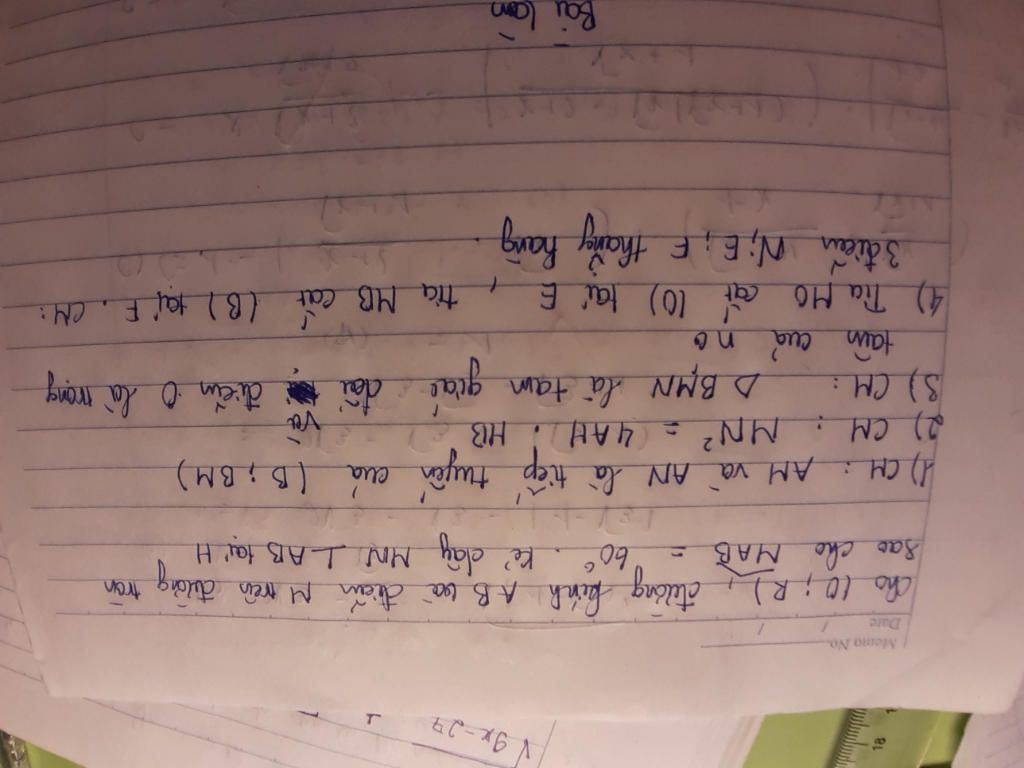 √9x-27
Memo No.
Date / /
Cho (O; R), đường kính AB và điểm M trên đường tròn
sao cho MAB = 60°. Kẻ dây MN ⊥ AB tại H
1) CM: AM và AN là tiếp tuyến của (B; BM)
2) CM: MN² = 4AH. HB
3) CM: Δ BMN là tam giác đều và điểm O là trọng
tâm của nó
4) Tia MO cắt (O) tại E, tia MB cắt (B) tại F. CM:
3 điểm N; E; F thẳng hàng.
Bài làm